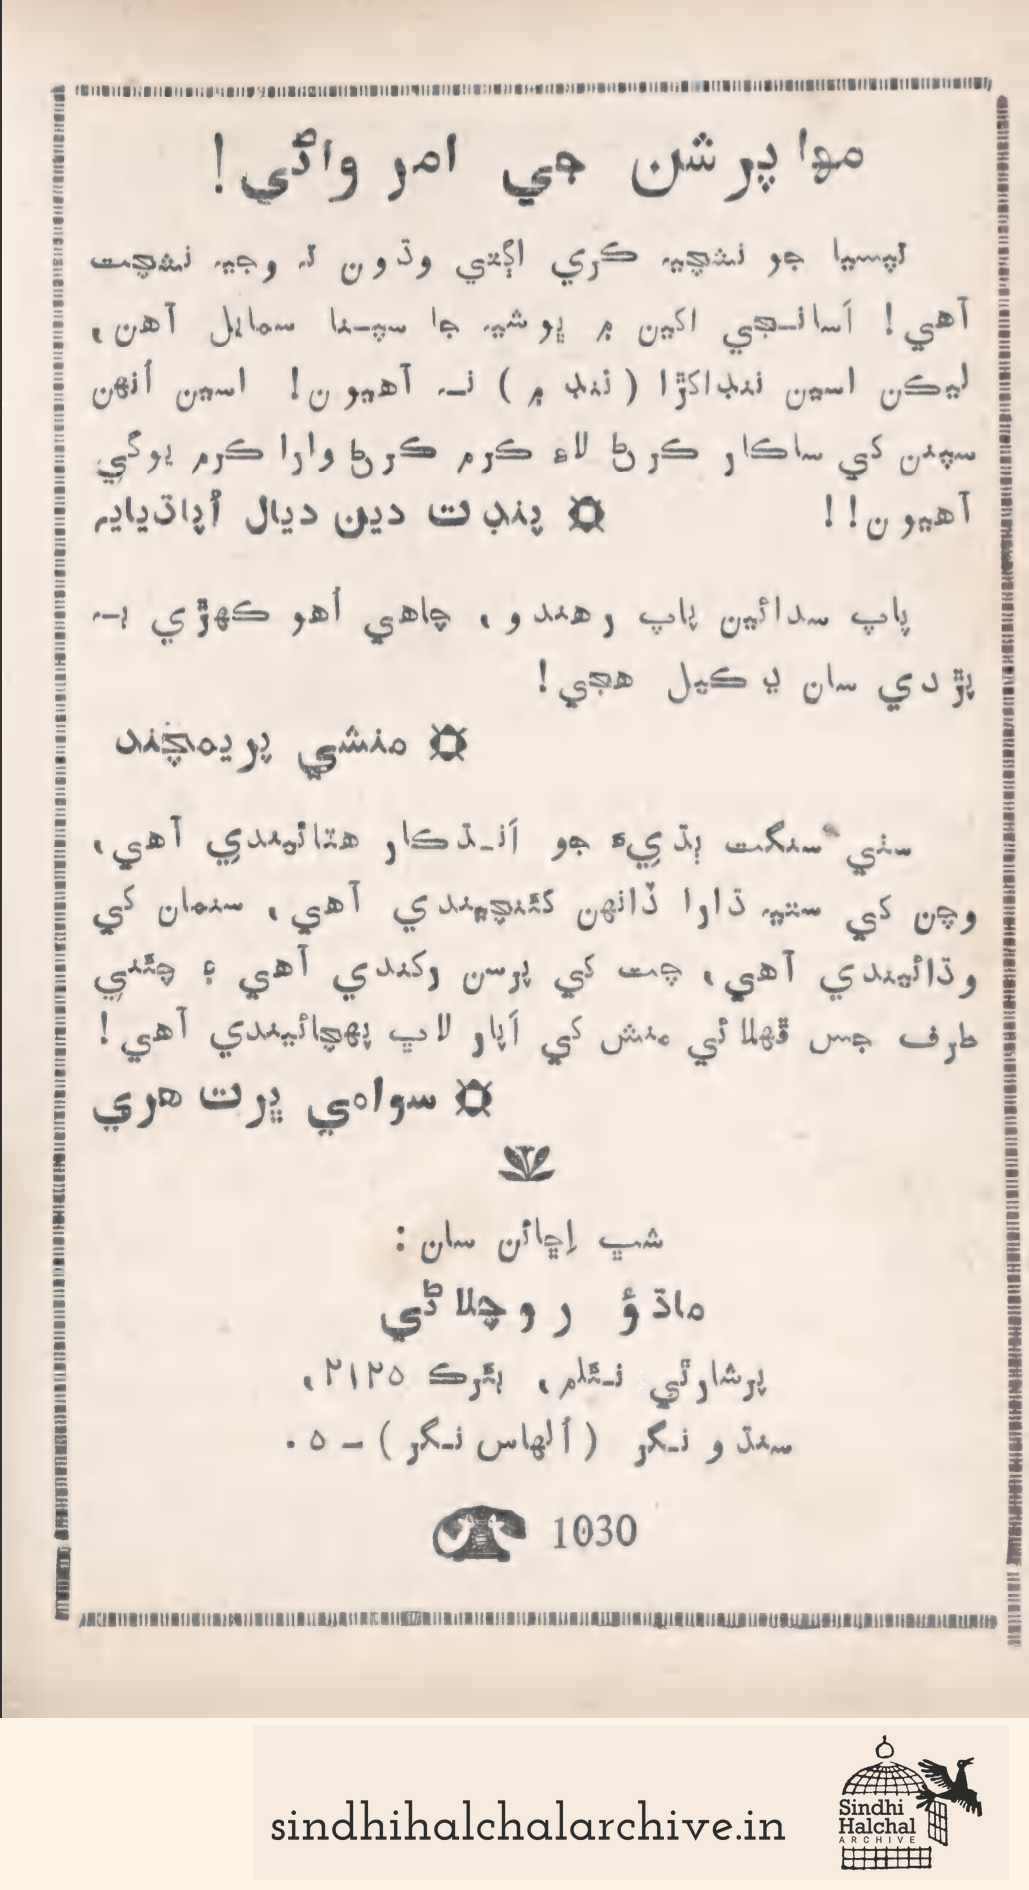 مها پرشن جي امر واڻي!
تپسيا جو نشچيہ ڪري اڳتي وڌون تہ وجيہ نشچت
آهي! اَسانـجي اکين ۾ ڀوشيہ جا سپـنا سمايل آهن،
ليڪن اسين ننڊاکڙا (ننڊ ۾) نـہ آهيون! اسين اُنهن
سپنن کي ساڪار ڪرڻ لاءِ ڪرم ڪرڻ وارا ڪرم يوگي
آهيون!! ¤ پنڊت دين ديال اُپاڌيايہ
پاپ سدائين پاپ رهندو، چاهي اُهو ڪهڙي بـہ
پڙدي سان ڍڪيل هجي!
¤ منشي پريمچند
ستي سنگت ٻڌيءَ جو اَنـڌڪار هٽائيندي آهي،
وچن کي ستيہ ڌارا ڏانهن کڻنچيندي آهي، سنمان کي
وڌائيندي آهي، چت کي پرسن رکندي آهي ۽ چئني
طرف جس ڦهلائي منش کي اَپار لاڀ پهچائيندي آهي!
¤ سوامي ڀرت هري
شڀ اِڇائن سان:
ماڌؤ روچلاڻي
پرشارٿي نـئلم، بئرڪ ۲۱۲۵،
سنڌو نـگر (اُلهاس نـگر) – ۵.
1030
sindhihalchalarchive.in
Sindhi
Halchal
ARCHIVE